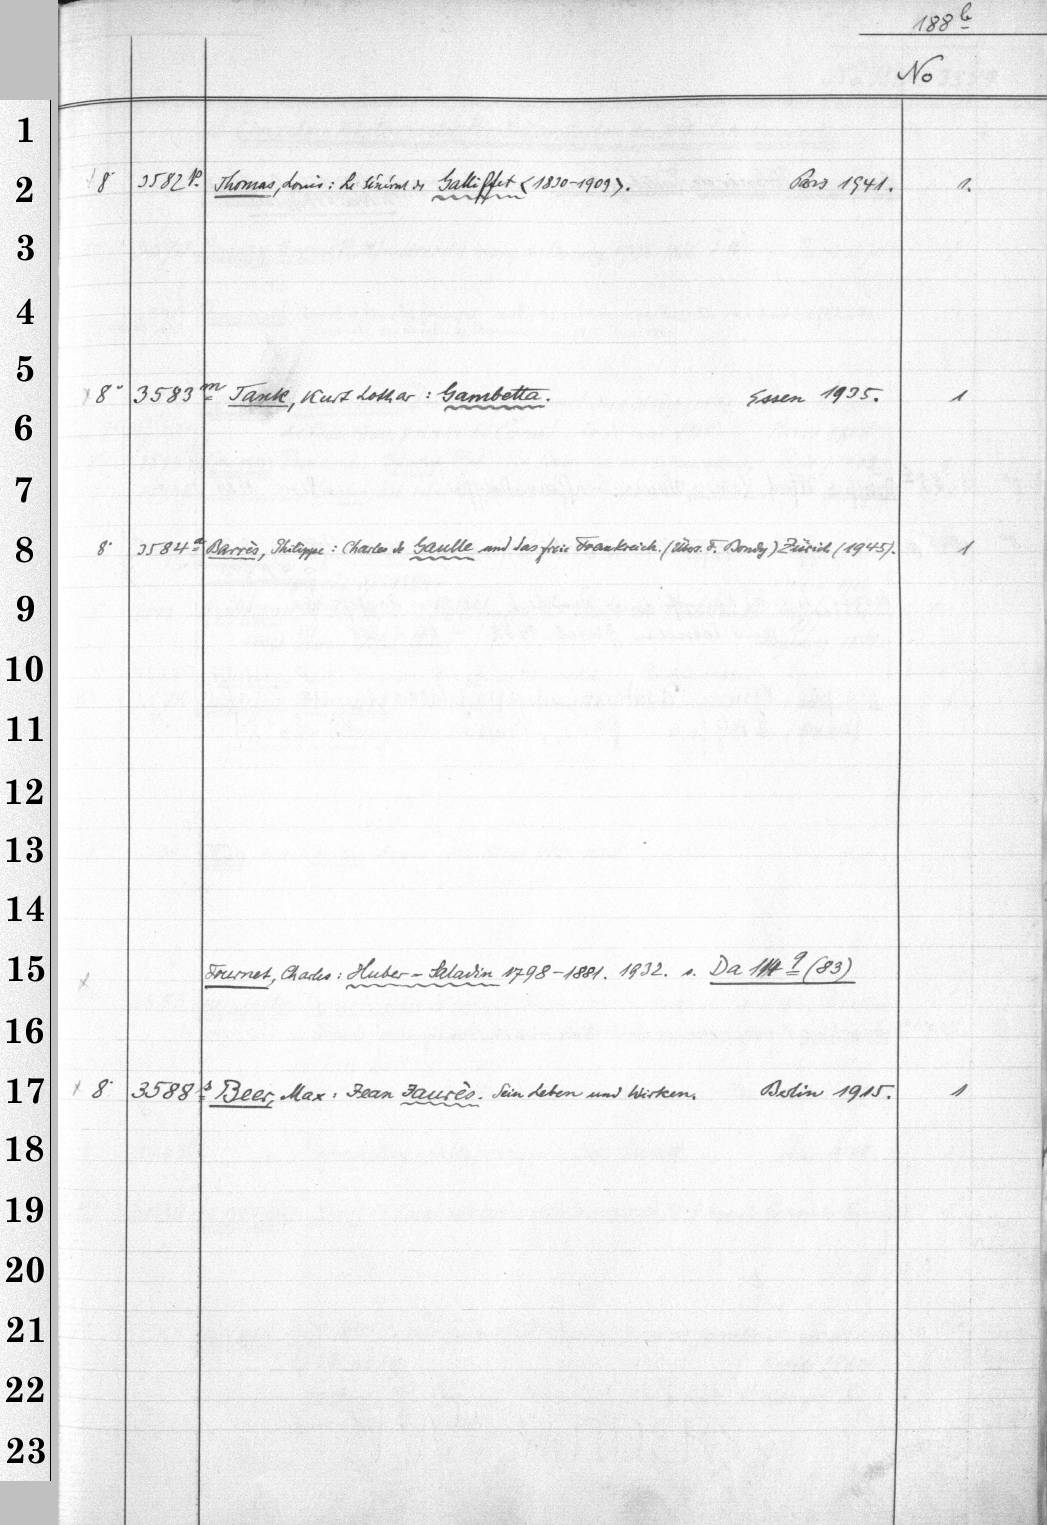 188 b
No
1
2 8° 3582 p. Thomas, Louis: Le Général de Galliffet <1830-1909>. Paris 1941. 1.
3
4
5
8° 3583 m Tank, Kurt Lothar: Gambetta. Essen 1935. 1
6
7
8 8° 3584 a Barrès, Philippe: Charles de Gaulle und das freie Frankreich. (Übers. F. Bondy) Zürich (1945). 1
9
10
11
12
13
14
15 Fournet, Charles: Huber-Saladin 1798-1881. 1932. s. Da 114 q (83)
16
17 8° 3588 s Beer, Max: Jean Jaurès. Sein Leben und Wirken. Berlin 1915. 1
18
19
20
21
22
23